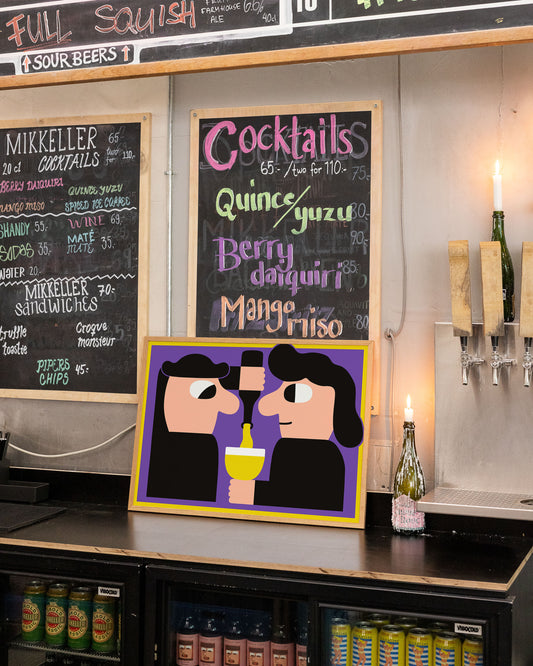 FULL SQUISH
FARMHOUSE 6.6%
ALE 40cl
10
↑ SOUR BEERS ↑
MIKKELLER 65-
20 cl COCKTAILS two for 110-
BERRY DAIQUIRI QUINCE YUZU
MANGO MISO SPICED ICE COFFEE
SHANDY 55- WINE 69-
SODAS 35- MATÉ 35-
WATER 20-
MIKKELLER 70-
sandwiches
truffle Croque
toastie monsieur
PIPERS
CHIPS 45-
Cocktails
65-/two for 110-
Quince/
yuzu
Berry
daiquiri
Mango
miso